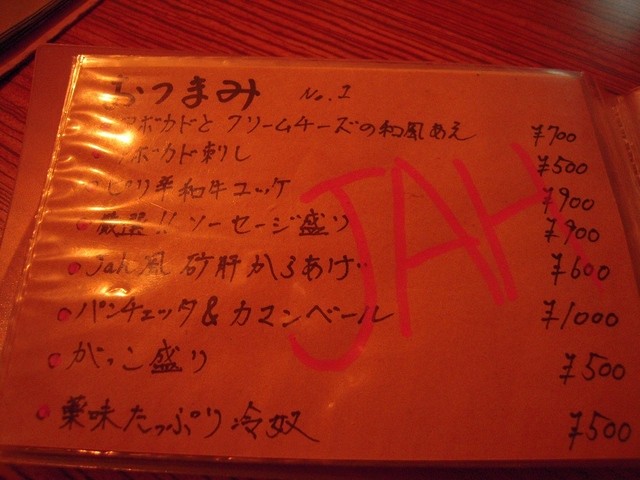 おつまみ No.1
アボカドとクリームチーズの和風あえ ¥700
アボカド刺し ¥500
ピリ辛和牛ユッケ ¥900
厳選!! ソーセージ盛り ¥900
Jah風 砂肝からあげ ¥600
パンチェッタ & カマンベール ¥1000
がっこ盛り ¥500
薬味たっぷり冷奴 ¥500
JAH